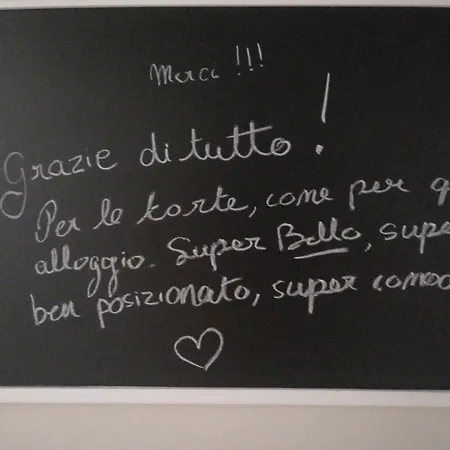 Merci !!!
Grazie di tutto !
Per le torte, come per q
alloggio. Super Bello, supe
ben posizionato, super comod